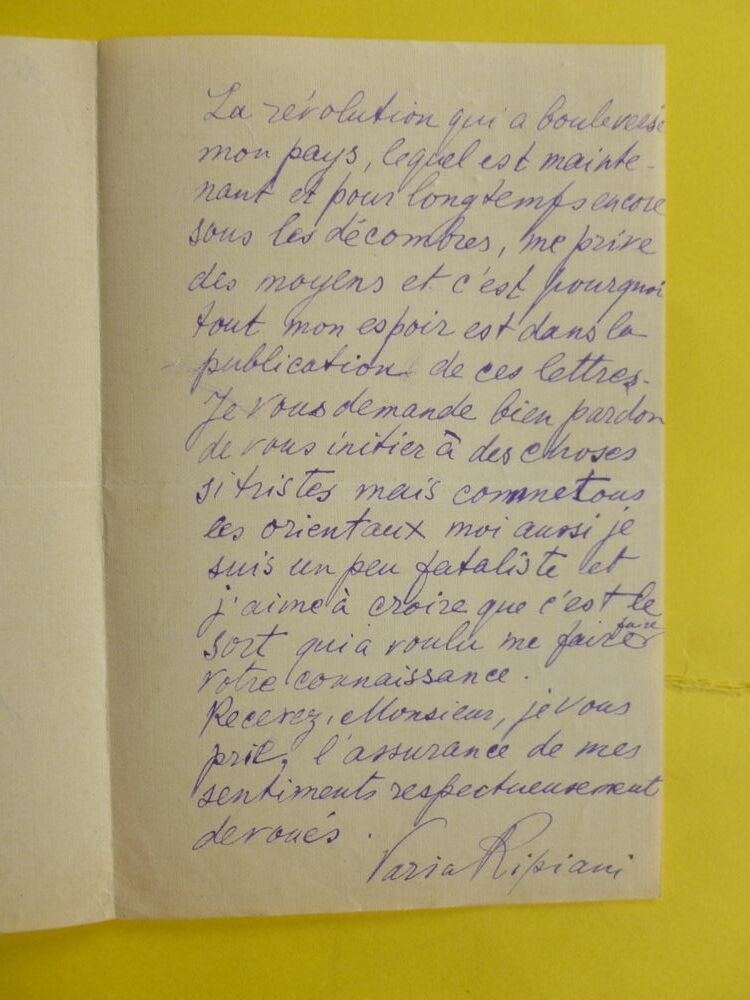 La révolution qui a bouleversé
mon pays, lequel est mainte-
nant et pour longtemps encore
sous les décombres, me prive
des moyens et c'est pourquoi
tout mon espoir est dans la
publication de ces lettres.
Je vous demande bien pardon
de vous initier à des choses
si tristes mais comme tous
les orientaux moi aussi je
suis un peu fataliste et
j'aime à croire que c'est le
sort qui a voulu me faire faire
votre connaissance.
Recevez, Monsieur, je vous
prie, l'assurance de mes
sentiments respectueusement
dévoués.
Varia Ripiani